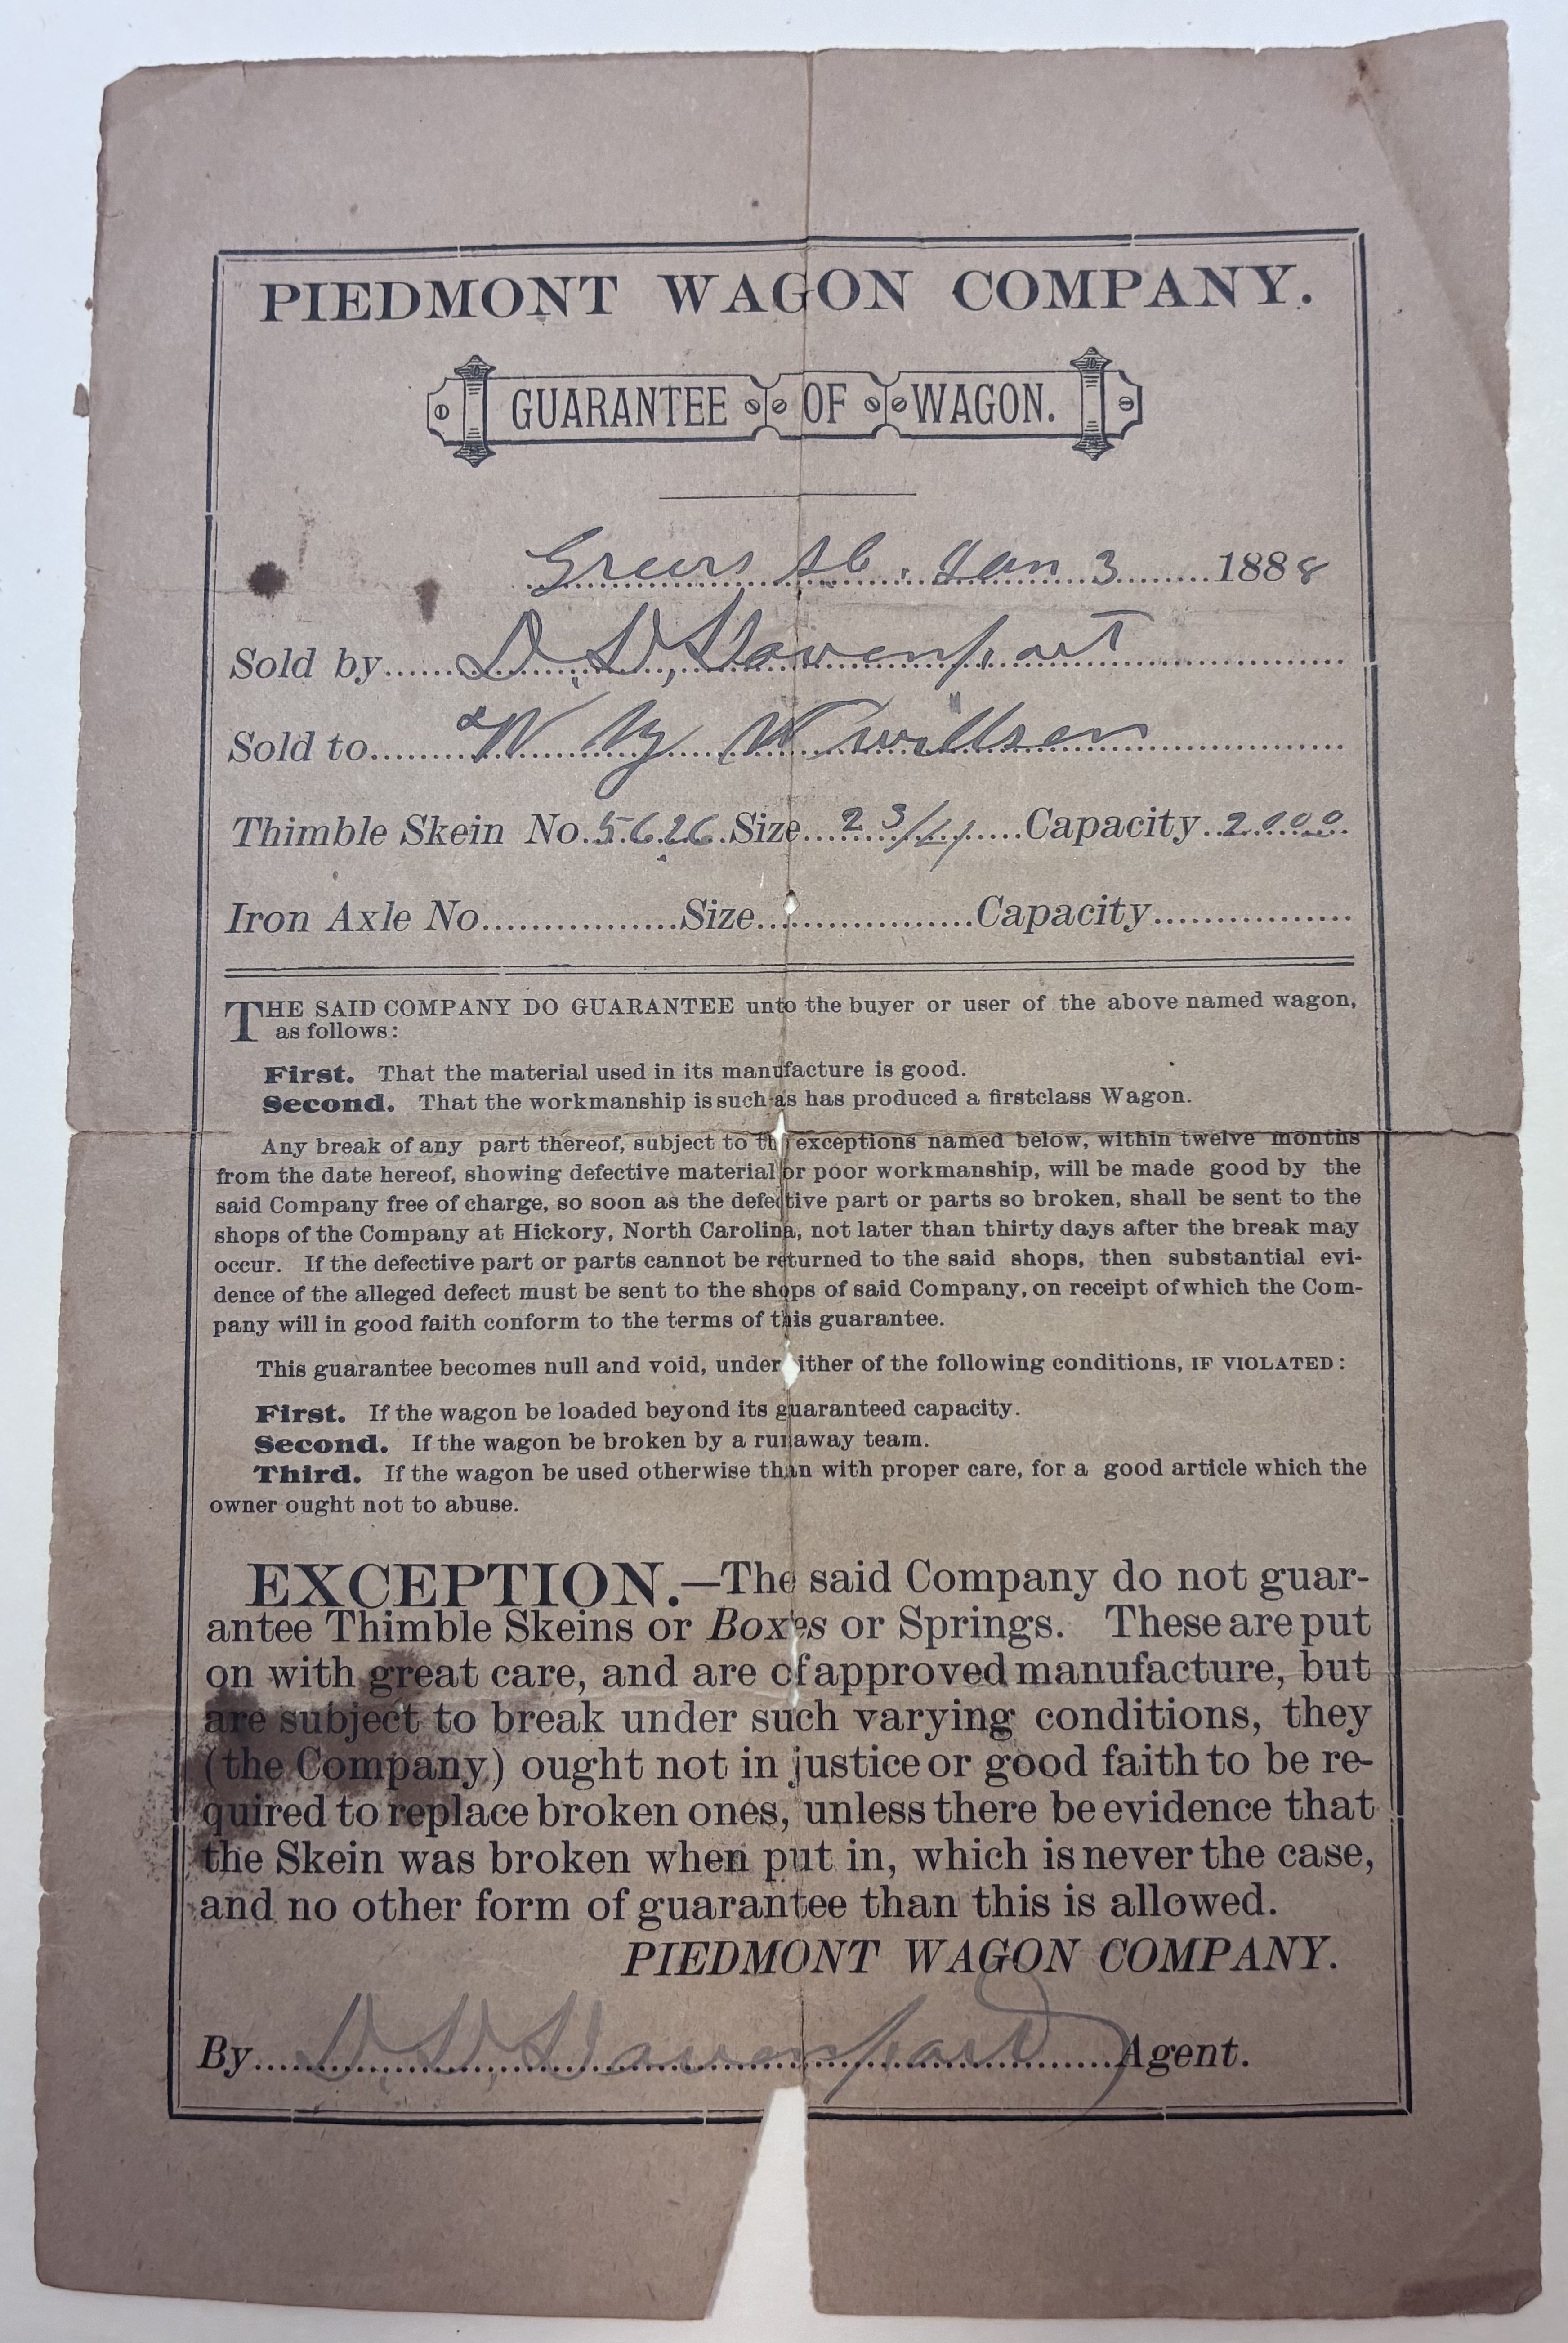 PIEDMONT WAGON COMPANY.
GUARANTEE OF WAGON.
Greers Jan 3 1888
Sold by D. D. Davenport
Sold to W
Thimble Skein No. 5626 Size 2 3/4 Capacity 2000
Iron Axle No. Size Capacity
THE SAID COMPANY DO GUARANTEE unto the buyer or user of the above named wagon,
as follows:
First. That the material used in its manufacture is good.
Second. That the workmanship is such as has produced a firstclass Wagon.
Any break of any part thereof, subject to the exceptions named below, within twelve months
from the date hereof, showing defective material or poor workmanship, will be made good by the
said Company free of charge, so soon as the defective part or parts so broken, shall be sent to the
shops of the Company at Hickory, North Carolina, not later than thirty days after the break may
occur. If the defective part or parts cannot be returned to the said shops, then substantial evi-
dence of the alleged defect must be sent to the shops of said Company, on receipt of which the Com-
pany will in good faith conform to the terms of this guarantee.
This guarantee becomes null and void, under either of the following conditions, IF VIOLATED:
First. If the wagon be loaded beyond its guaranteed capacity.
Second. If the wagon be broken by a runaway team.
Third. If the wagon be used otherwise than with proper care, for a good article which the
owner ought not to abuse.
EXCEPTION.—The said Company do not guar-
antee Thimble Skeins or Boxes or Springs. These are put
on with great care, and are of approved manufacture, but
are subject to break under such varying conditions, they
(the Company) ought not in justice or good faith to be re-
quired to replace broken ones, unless there be evidence that
the Skein was broken when put in, which is never the case,
and no other form of guarantee than this is allowed.
PIEDMONT WAGON COMPANY.
By D. D. Davenport Agent.